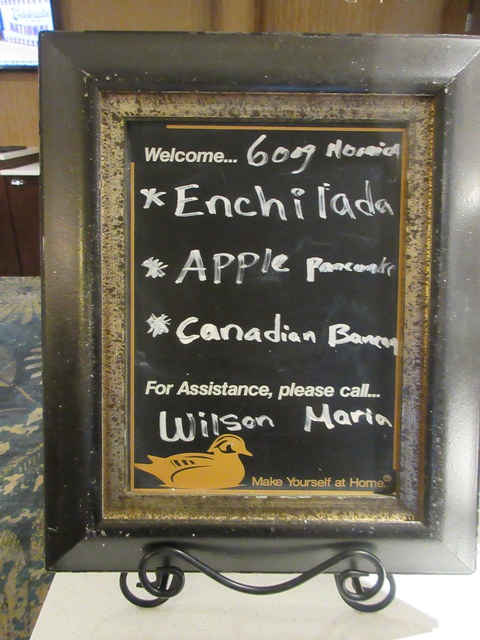 NATIONAL
Welcome... Goog Mornin
* Enchilada
* APPLE Pancake
* Canadian Bancon
For Assistance, please call...
Wilson Maria
Make Yourself at Home®